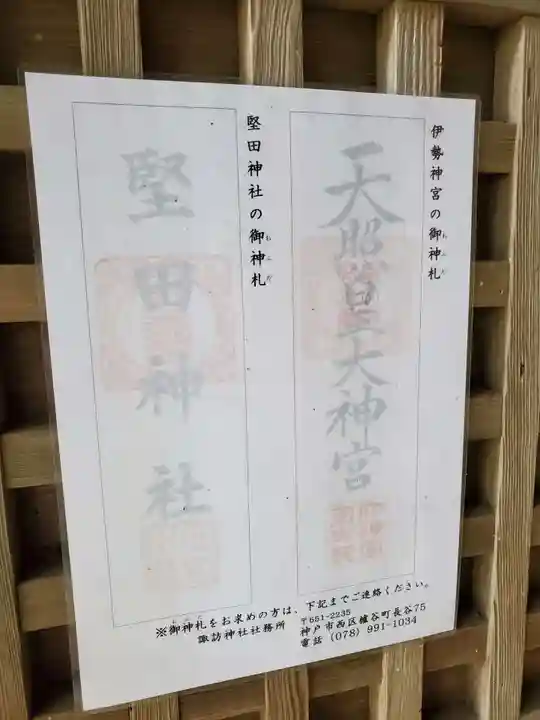 伊勢神宮の御神札
天照皇大神宮
堅田神社の御神札
堅田神社
※御神札をお求めの方は、下記までご連絡ください。
諏訪神社社務所
〒651-2235
神戸市西区櫨谷町長谷75
電話 (078) 991-1034